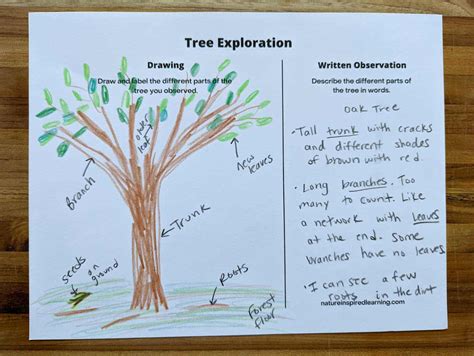 Tree Exploration
Drawing
Draw and label the different parts of the
tree you observed.
leaf
new
leaves
Branch
Trunk
seeds
on
ground
Roots
Forest
floor
Written Observation
Describe the different parts of
the tree in words.
Oak Tree
• Tall trunk with cracks
and different shades
of brown with red.
• Long branches. Too
many to count. Like
a network with leaves
at the end. Some
branches have no leaves
• I can see a few
roots in the dirt
natureinspiredlearning.com